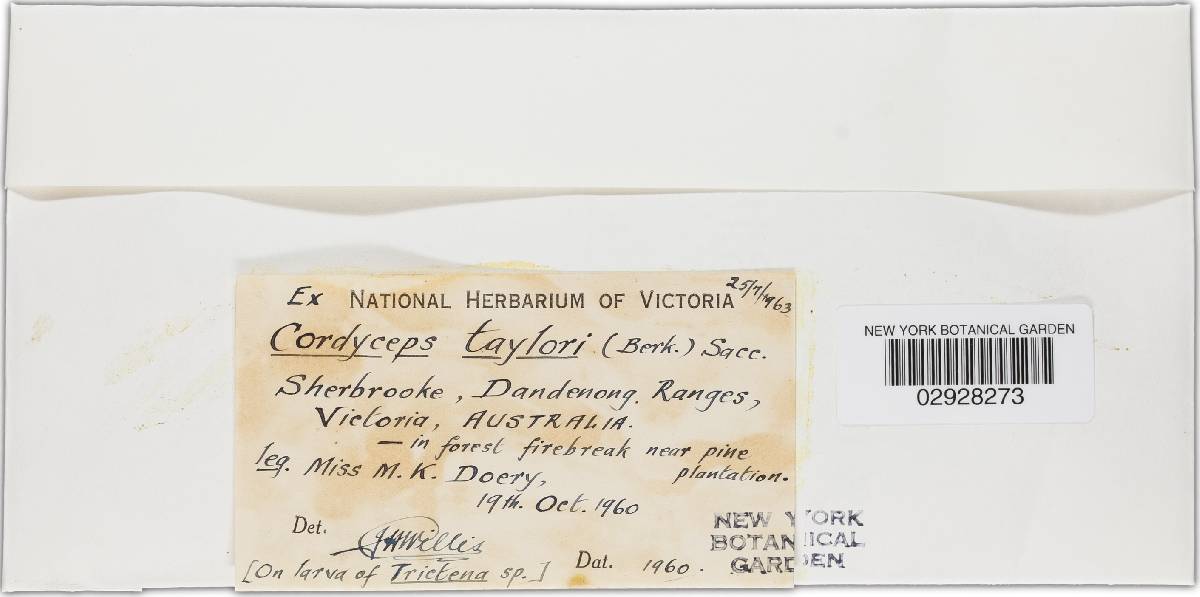 Ex NATIONAL HERBARIUM OF VICTORIA 25/7/1963
Cordyceps taylori (Berk.) Sacc.
Sherbrooke, Dandenong Ranges,
Victoria, AUSTRALIA.
— in forest firebreak near pine
plantation.
leg. Miss M. K. Doery,
19th. Oct. 1960
Det. JHWillis
[On larva of Trictena sp.] Dat. 1960.
NEW YORK
BOTANICAL
GARDEN
NEW YORK BOTANICAL GARDEN
02928273